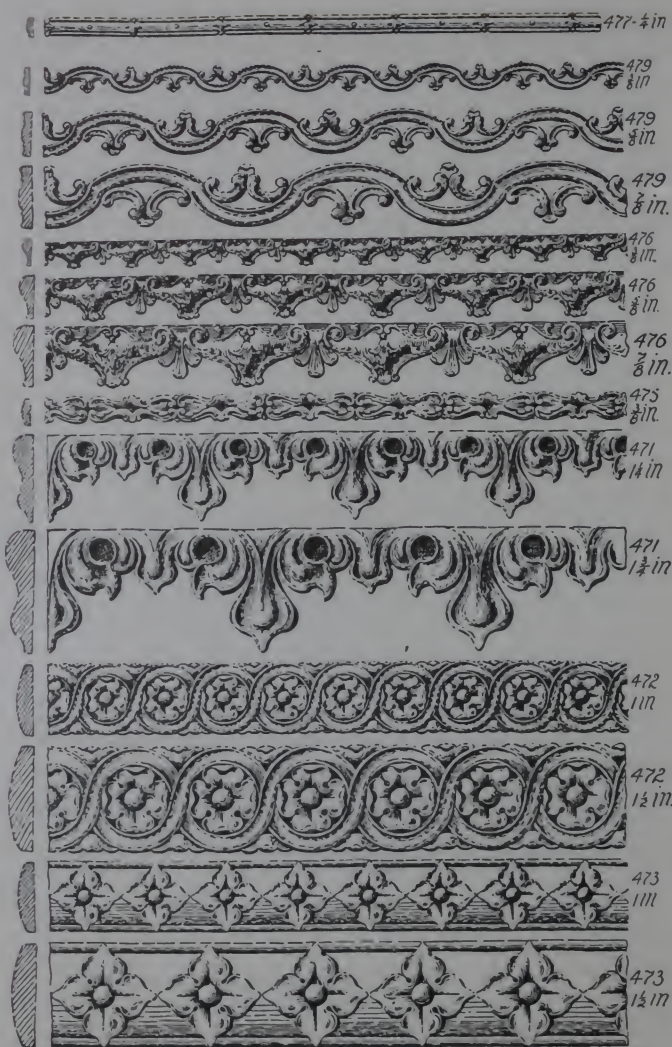 477-¼ in
479
⅜in
479
⅝in
479
⅞in.
476
⅜in.
476
⅝in.
476
⅞in.
475
⅜in.
471
1¼ in
471
1¾ in
472
1 in
472
1½ in
473
1 in
473
1½ in